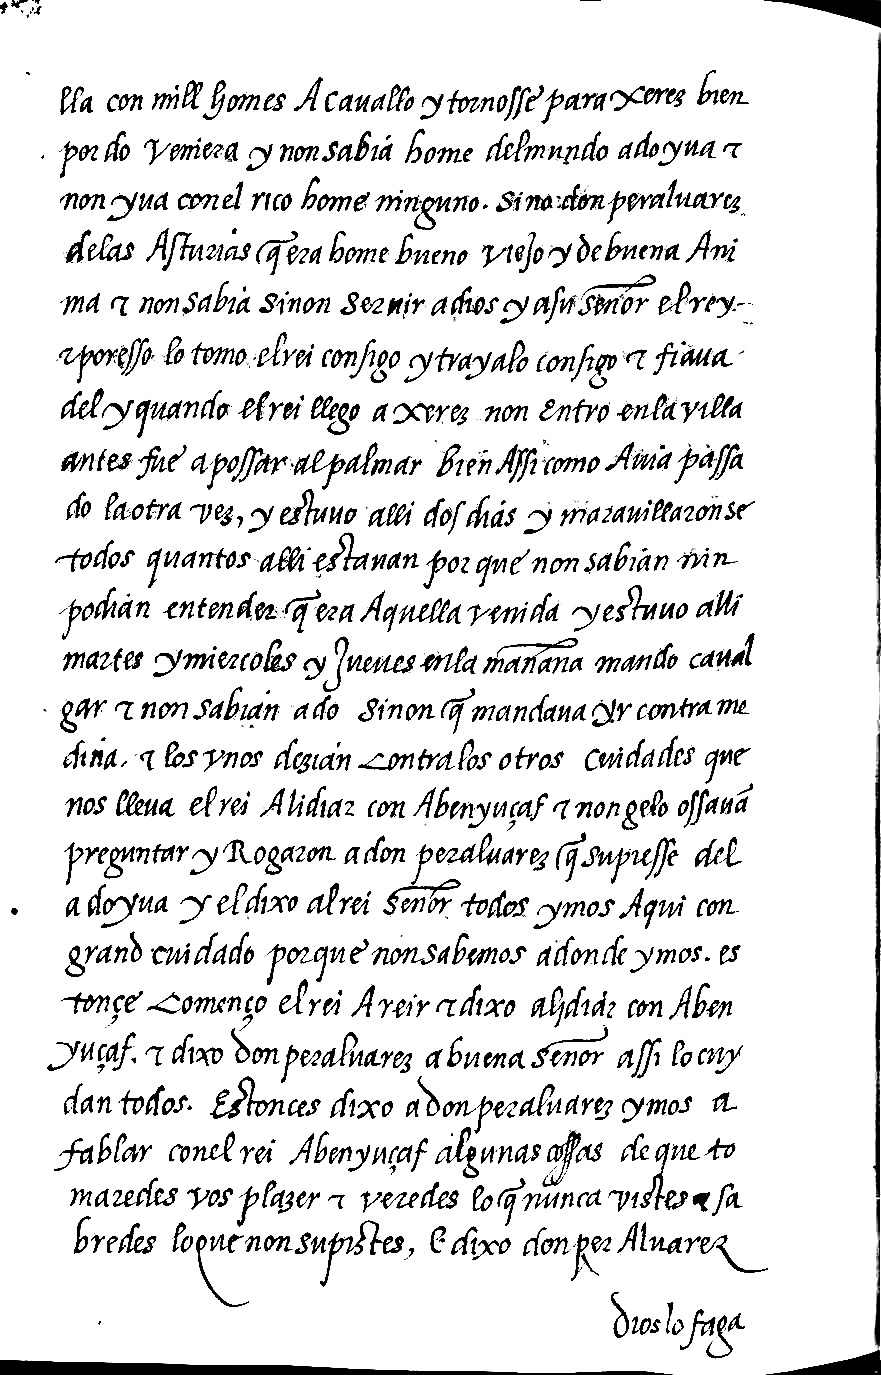 lla con mill homes A cavallo y tornosse para xerez bien
por do veniera y non sabiá home del mundo ado yua ⁊
non yua con el rico home ninguno. Sino don peraluarez
delas Asturiás q̃ era home bueno viejo y de buena Ani
ma ⁊ non sabiá sinon seruir a dios y asu señor el rey.
⁊ poresso lo tomo el rei consigo y trayalo consigo ⁊ fiaua
del y quando el rei llego a xerez non Entro en la villa
antes fue a possar al palmar bien Assi como Auia passa
do la otra vez, y estuuo alli dos diás y marauillaronse
todos quantos alli estauan por que non sabián nin
podián entender q̃ era Aquella venida y estuuo alli
martes y miercoles y Jueues en la mañana mando caual
gar ⁊ non sabián ado sinon q̃ mandaua yr contra me
dina. ⁊ los vnos dezián Contra los otros Cuidades que
nos lleua el rei Alidiaz con Abenyuçaf ⁊ non gelo ossauã
preguntar y Rogaron a don peraluarez q̃ supiesse del
a do yua y el dixo al rei señor todos ymos Aqui con
grand cuidado porque non sabemos adonde ymos. es
tonçe Començo el rei A reir ⁊ dixo alidiáz con Aben
yuçaf. ⁊ dixo don peraluarez a buena señor assi lo cuy
dan todos. Estonces dixo a don peraluarez ymos a
fablar con el rei Abenyuçaf algunas cossas de que to
maredes vos plazer ⁊ veredes lo q̃ nunca vistes ⁊ sa
bredes lo que non supistes, E dixo don per Aluarez
dios lo faga